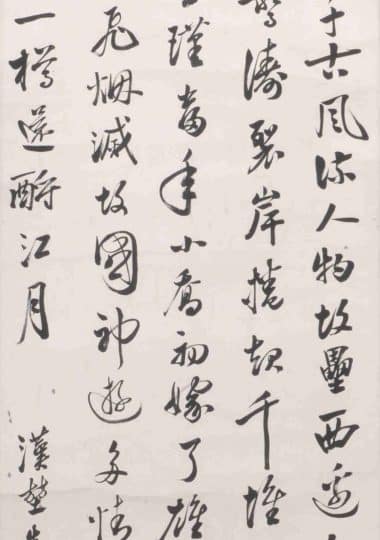 千古風流人物故壘西邊
驚濤裂岸捲起千堆
瑾當年小喬初嫁了雄
飛烟滅故國神遊多情
一樽還酹江月 漢楚